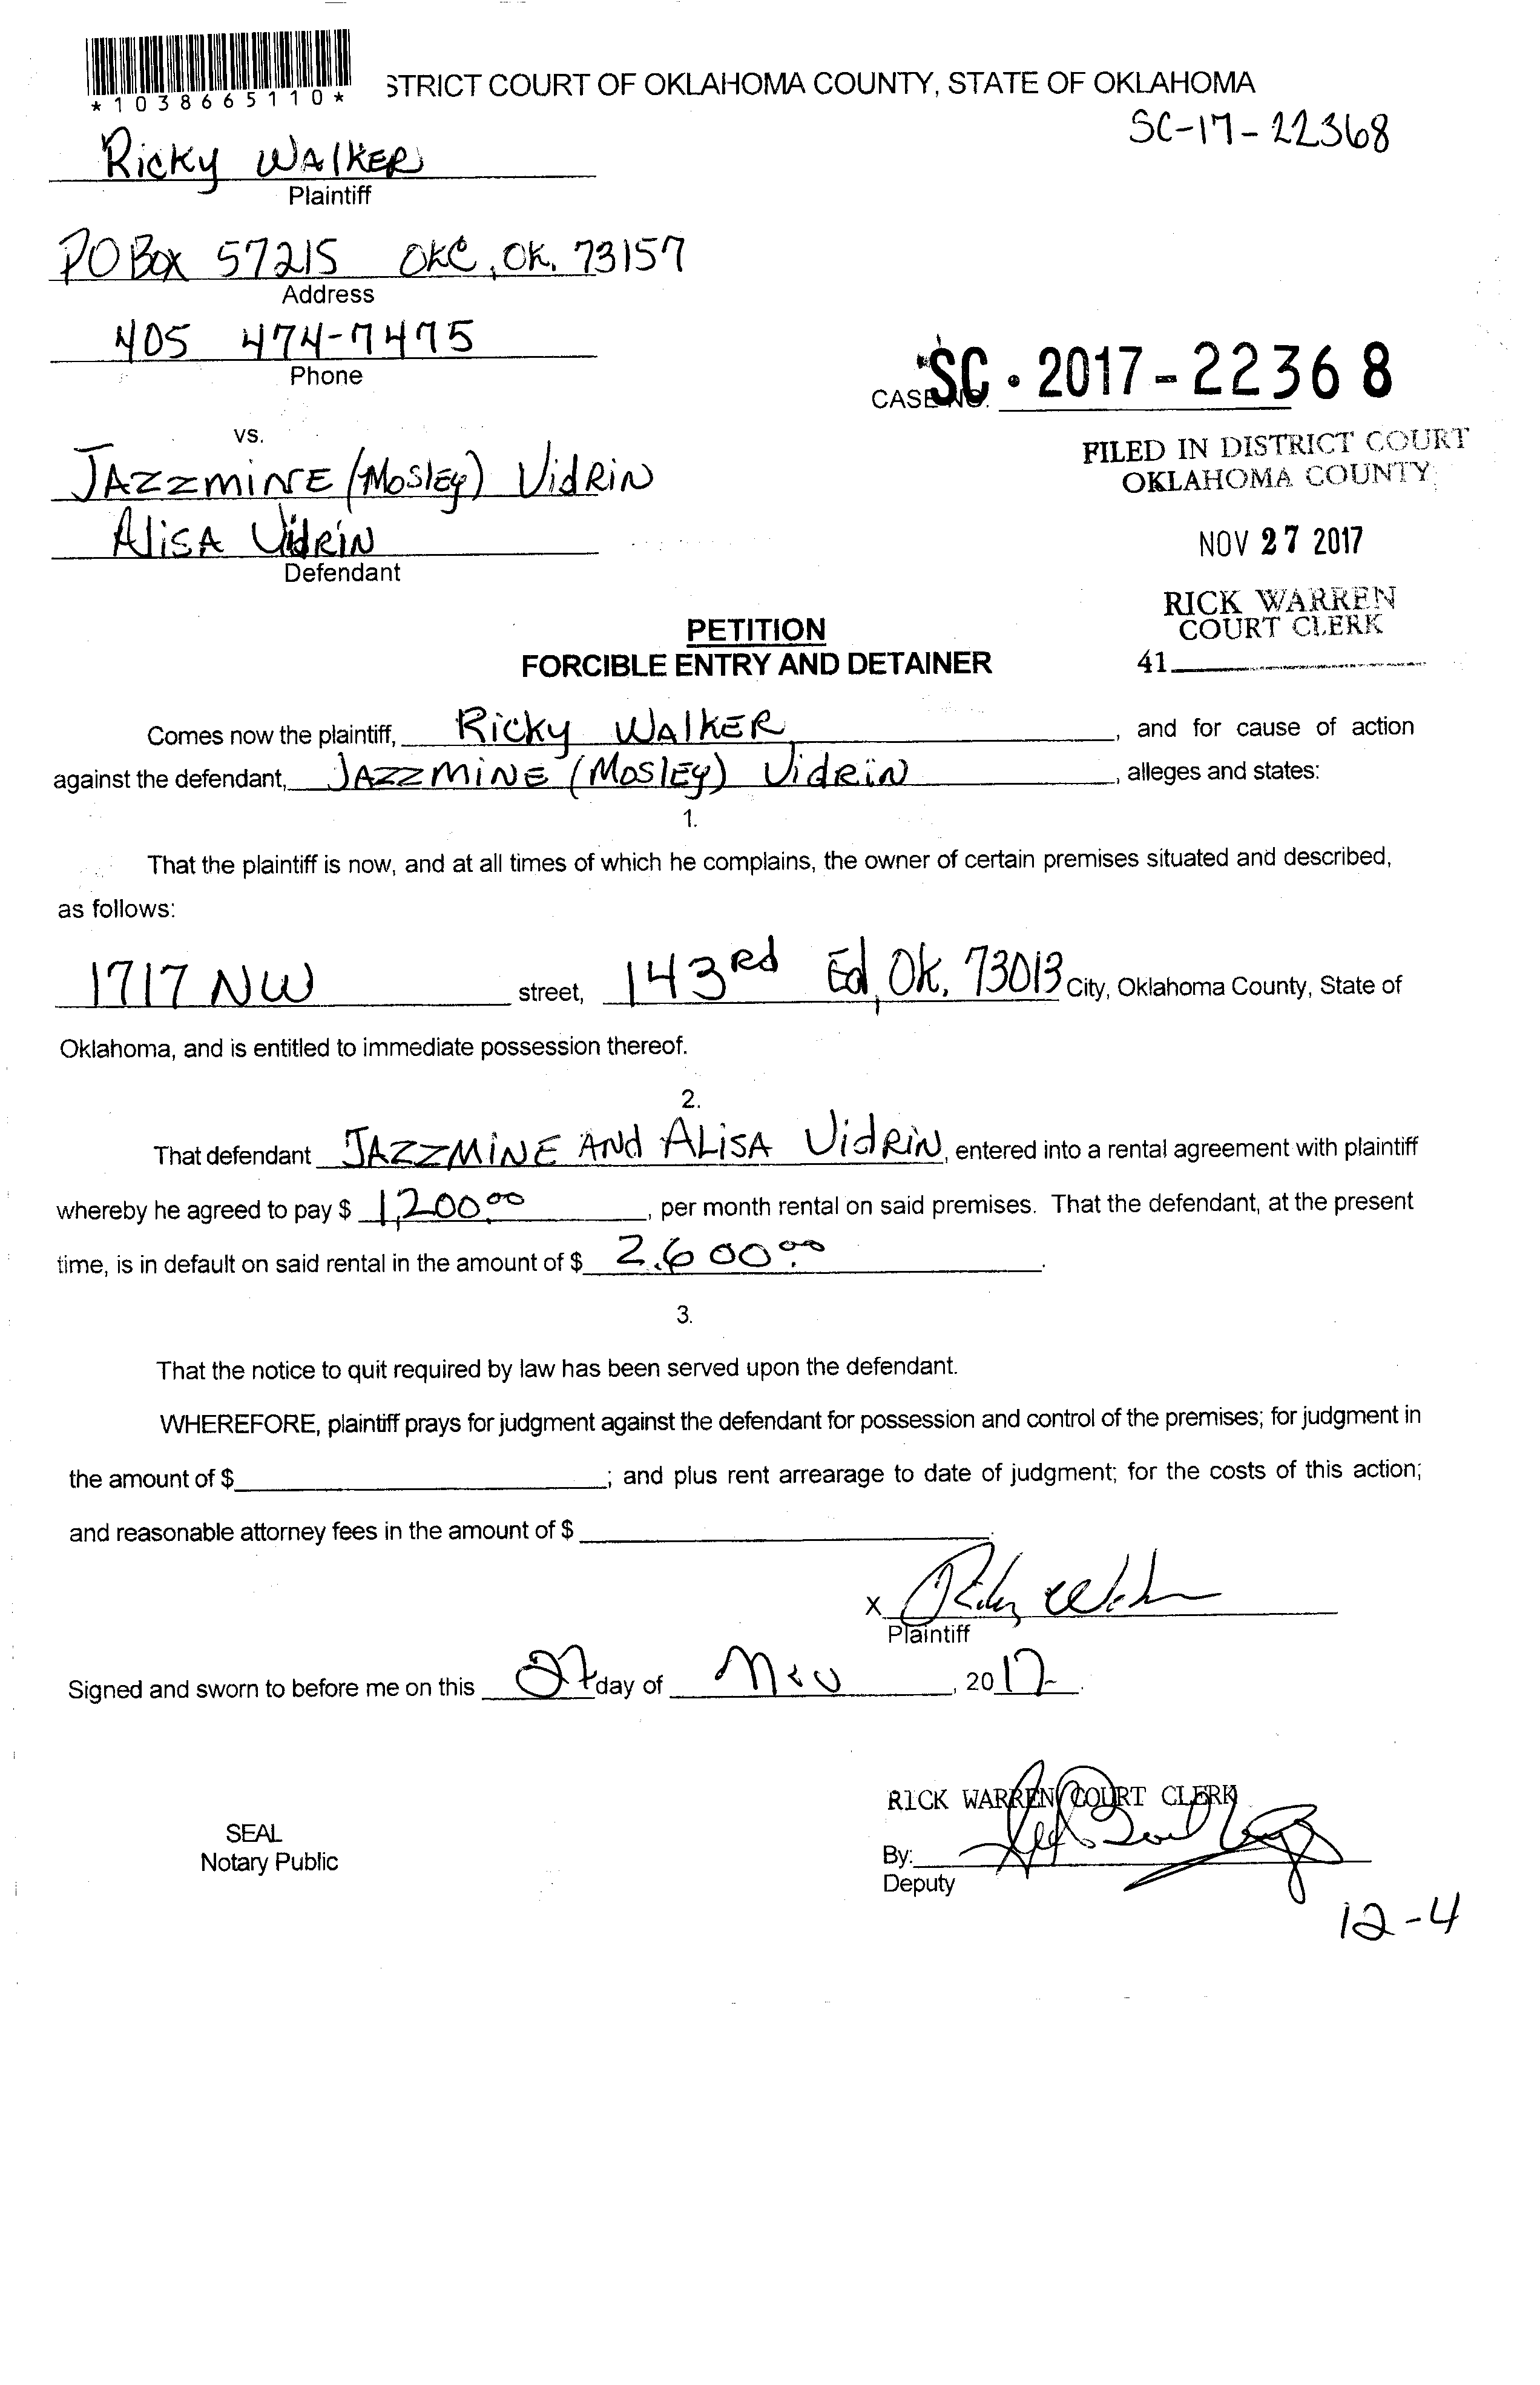 *1038665110*
STRICT COURT OF OKLAHOMA COUNTY, STATE OF OKLAHOMA
SC-17-22368
Ricky WAlKER
Plaintiff
PO Box 57215 OKC, OK. 73157
Address
405 474-7475
Phone
CASE NO. SC-2017-22368
vs.
FILED IN DISTRICT COURT
OKLAHOMA COUNTY
JAzzmiNE (Mosley) VidRiN
AlisA VidRiN
Defendant
NOV 27 2017
RICK WARREN
COURT CLERK
41
PETITION
FORCIBLE ENTRY AND DETAINER
Comes now the plaintiff, Ricky WAlkER, and for cause of action
against the defendant, JAZZMiNE (MoslEy) VidRiN, alleges and states:
1.
That the plaintiff is now, and at all times of which he complains, the owner of certain premises situated and described,
as follows:
1717 NW street, 143rd Ed, Ok. 73013 City, Oklahoma County, State of
Oklahoma, and is entitled to immediate possession thereof.
2.
That defendant JAZZMiNE ANd ALiSA VidRiN, entered into a rental agreement with plaintiff
whereby he agreed to pay $ 1,200.00, per month rental on said premises. That the defendant, at the present
time, is in default on said rental in the amount of $ 2,600.00.
3.
That the notice to quit required by law has been served upon the defendant.
WHEREFORE, plaintiff prays for judgment against the defendant for possession and control of the premises; for judgment in
the amount of $; and plus rent arrearage to date of judgment; for the costs of this action;
and reasonable attorney fees in the amount of $.
x Ricky Walker
Plaintiff
Signed and sworn to before me on this 27 day of Nov, 2017.
RICK WARREN COURT CLERK
SEAL
Notary Public
By:
Deputy
12-4